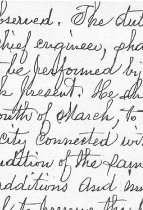 bserved. The dut
chief engineer, sha
be performed by
present. He sh
outh of March, to
city connected wi
dition of the sam
additions and im